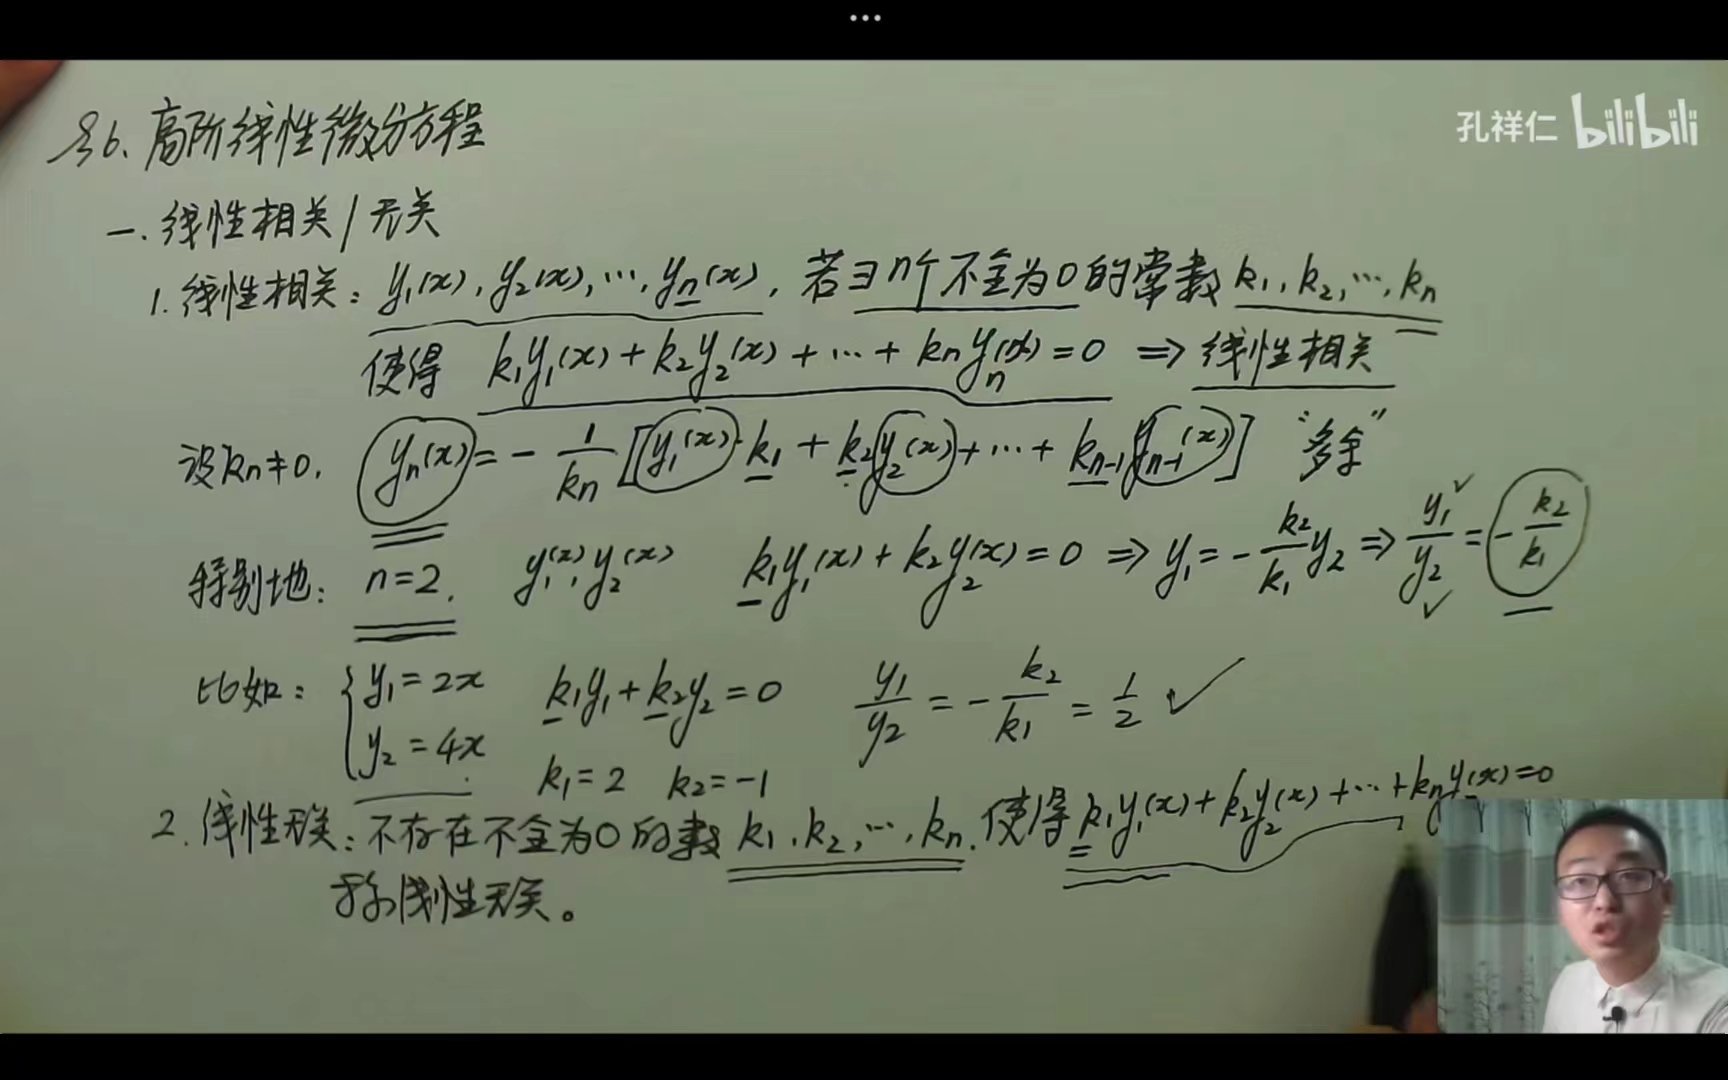 孔祥仁 bilibili
§6. 高阶线性微分方程
一. 线性相关 / 无关
1. 线性相关: y₁(x), y₂(x), …, yₙ(x), 若∃n个不全为0的常数 k₁, k₂, …, kₙ
使得 k₁y₁(x) + k₂y₂(x) + … + kₙyₙ(x) = 0 ⇒ 线性相关
设kₙ≠0, yₙ(x) = - 1/kₙ [y₁(x)·k₁ + k₂y₂(x) + … + kₙ₋₁yₙ₋₁(x)] "多余"
特别地: n=2. y₁(x), y₂(x) k₁y₁(x) + k₂y₂(x) = 0 ⇒ y₁ = - k₂/k₁ y₂ ⇒ y₁/y₂ = - k₂/k₁
比如: { y₁ = 2x k₁y₁ + k₂y₂ = 0 y₁/y₂ = - k₂/k₁ = 1/2 ✓
y₂ = 4x k₁ = 2 k₂ = -1
2. 线性无关: 不存在不全为0的数 k₁, k₂, …, kₙ. 使得 k₁y₁(x) + k₂y₂(x) + … + kₙyₙ(x) = 0
称线性无关。